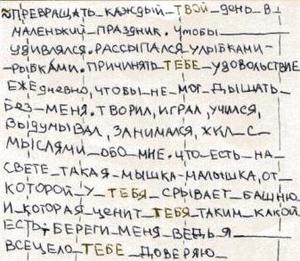 ПРЕВРАЩАТЬ КАЖДЫЙ ТВОЙ ДЕНЬ В
МАЛЕНЬКИЙ ПРАЗДНИК. ЧТОБЫ
УДИВЛЯЛСЯ. РАССЫПАЛСЯ УЛЫБКАМИ-
РЫБКАМИ. ПРИЧИНЯТЬ ТЕБЕ УДОВОЛЬСТВИЕ
ЕЖЕДНЕВНО, ЧТОБЫ НЕ МОГ ДЫШАТЬ
БЕЗ МЕНЯ. ТВОРИЛ, ИГРАЛ, УЧИЛСЯ,
ВЫДУМЫВАЛ, ЗАНИМАЛСЯ, ЖИЛ С
МЫСЛЯМИ ОБО МНЕ. ЧТО ЕСТЬ НА
СВЕТЕ ТАКАЯ МЫШКА-МАЛЫШКА, ОТ
КОТОРОЙ У ТЕБЯ СРЫВАЕТ БАШНЮ
И КОТОРАЯ ЦЕНИТ ТЕБЯ ТАКИМ КАКОЙ
ЕСТЬ. БЕРЕГИ МЕНЯ ВЕДЬ Я
ВСЕЦЕЛО ТЕБЕ ДОВЕРЯЮ